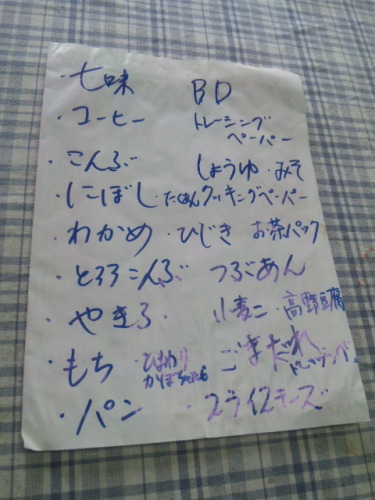 ・七味 BD
・コーヒー トレーシング
ペーパー
・こんぶ しょうゆ・みそ
・にぼし・クッキングペーパー
・わかめ・ひじき お茶パック
・とろろこんぶ つぶあん
・やきふ 小麦こ・高野豆腐
・もち・ひまわり ごまだれ
かぼちゃ
・パン ・スライスチーズ